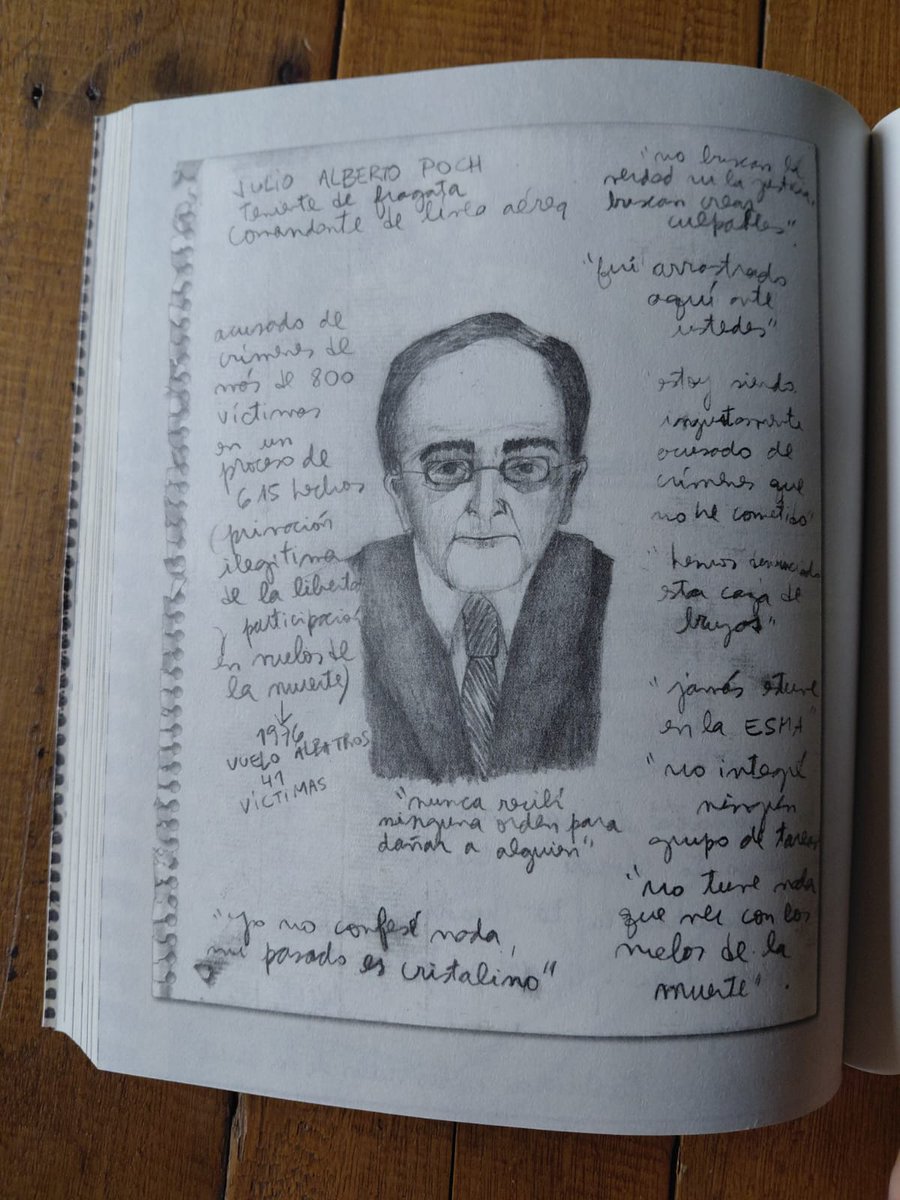 JULIO ALBERTO POCH
teniente de fragata
comandante de línea aérea
"no buscan la
verdad ni la justicia,
buscan crear
culpables".
"fuí arrastrado
aquí ante
ustedes"
acusado de
crímenes de
más de 800
víctimas
en un
proceso de
615 hechos
(privación
ilegítima
de la liberta
y participación
en vuelos de
la muerte)
↓
1976
VUELO ALBATROS
41
VÍCTIMAS
"estoy siendo
injustamente
acusado de
crímenes que
no he cometido"
"hemos
esta caza de
brujas"
"jamás estuve
en la ESMA"
"no integré
ningún
grupo de tareas
"no tuve nada
que ver con los
vuelos de la
muerte".
"nunca recibí
ninguna orden para
dañar a alguien"
"Yo no confesé nada,
mi pasado es cristalino"